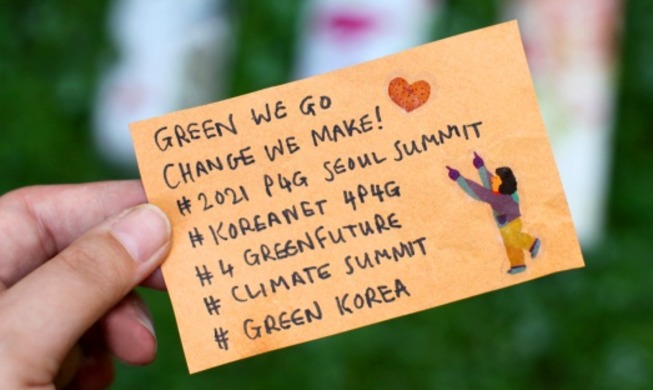 GREEN WE GO
CHANGE WE MAKE!
# 2021 P4G SEOUL SUMMIT
# KOREANET 4P4G
# 4 GREENFUTURE
# CLIMATE SUMMIT
# GREEN KOREA